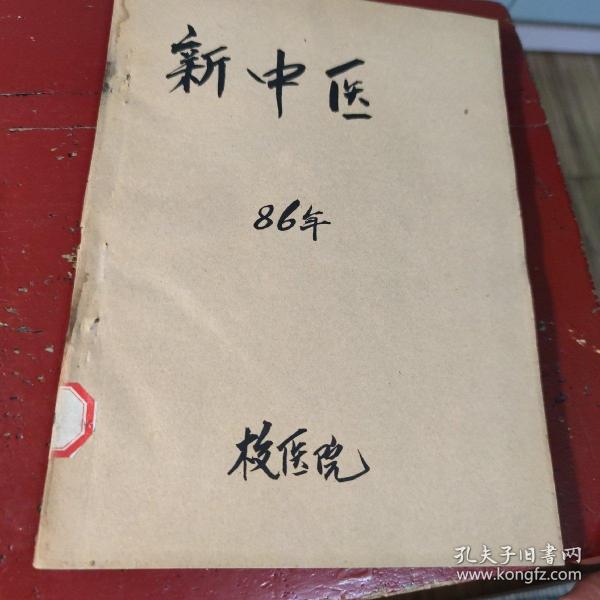 新中医
86年
校医院
孔夫子旧書网
www.kongfz.com